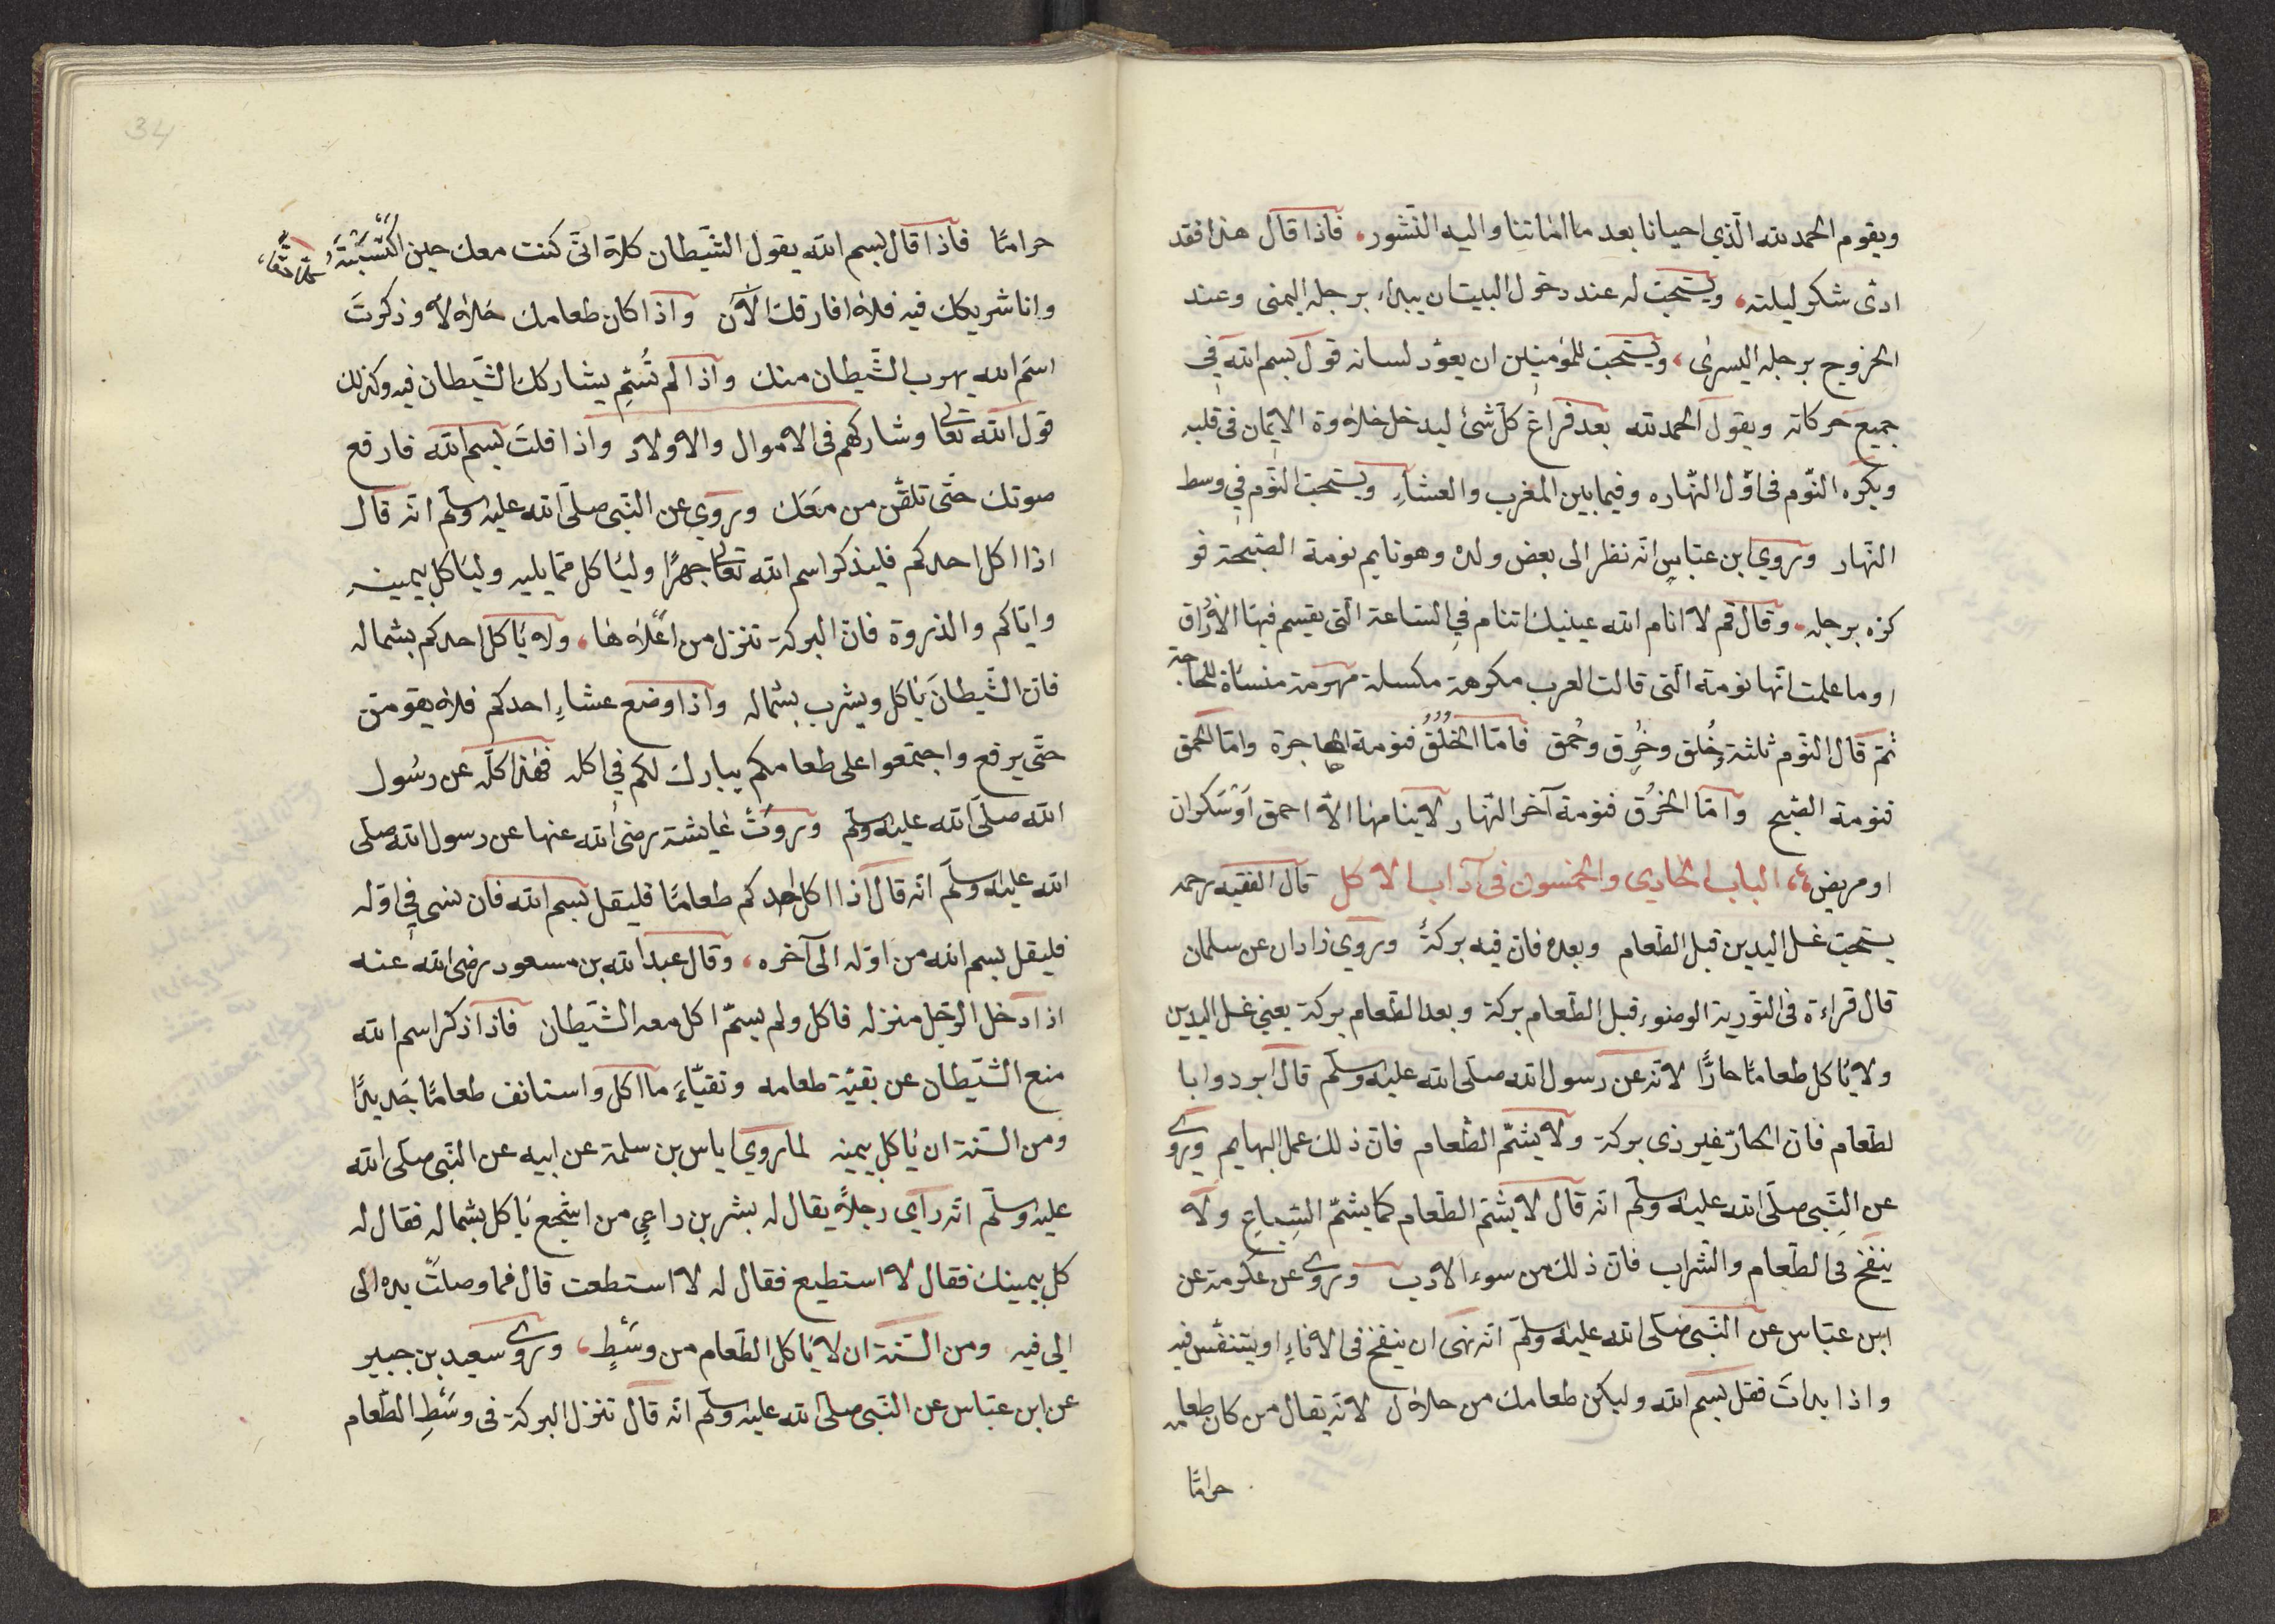 ويقوم الحمد لله الّذي احيانا بعد ما اماتنا واليه النّشور فاذا قال هذا فقد
ادّى شكر ليلته ويستحبّ له عند دخول البيت ان يبداء برجله اليمنى وعند
الخروج برجله اليسرى ويستحبّ للمؤمنين ان يعوّد لسانه قول بسم الله في
جميع حركاته ويقول الحمد لله بعد فراغ كلّ شئ ليدخل حلاوة الايمان في قلبه
ويكره النّوم في اوّل النّهاره وفيما بين المغرب والعشاءِ ويستحبّ النّوم في وسط
النّهار وروي ابن عبّاس انّه نظر الى بعض ولده وهو نايم نومة الصّبحة فو
كزه برجله وقال قم لا انام الله عينيك اتنام في السّاعة الّتي يقسم فيها الارزاق
او ما علمت انّها نومة الّتي قالت العرب مكرهة مكسلة مهرمة منساة للحاجة
ثمّ قال النّوم ثلثة خُلق وخُرق وحُمق فامّا الخُلُقُ فنومة الهاجرة وامّا الحمق
فنومة الصّبح وامّا الخرُق فنومة آخر النّهار لا ينامها الاّ احمق اوْ سَكران
او مريض الباب الحادي والخمسون في آداب الاكل قال الفقيه رحمه
يستحبّ غسل اليدين قبل الطّعام وبعده فانّ فيه بركةً وروي زاذان عن سلمان
قال قراءة في التّورية الوضوء قبل الطّعام بركة وبعد الطّعام بركة يعني غسل اليدين
ولا يأكل طعامًا حارًّا لانّه عن رسول الله صلّى الله عليه وسلّم قال ابردوا با
لطّعام فانّ الحارّ غير ذى بركة ولا يشمّ الطّعام فانّ ذلك عمل البهايم وروي
عن النّبي صلّى الله عليه وسلّم انّه قال لا يشمّ الطّعام كما يشمّ السِّباعِ ولا
ينفخ في الطّعام والشّراب فانّ ذلك من سوء الادب وروي عن عكرمة عن
ابن عبّاس عن النّبي صلّى الله عليه وسلّم انّه نهى ان ينفخ في الاناءِ او يتنفّس فيه
واذا بدات فقل بسم الله وليكن طعامك من حلال لانّه يقال من كان طعامه
حرامًا
34
حرامًا فاذا قال بسم الله يقول الشّيطان كلاّ انّي كنت معك حين اكتسَبْتَهُ
وانا شريكك فيه فلا افارقك الآن واذا كان طعامك حلالا وذكرتَ
اسمَ الله يهرب الشّيطان منك واذا لم تُسَمِّ يشاركك الشّيطان فيه وكذلك
قول الله تعالى وشاركهم في الاموال والاولاد واذا قلتَ بسم الله فارفع
صوتك حتّى تلقّن من مَعَك وروي عن النّبي صلّى الله عليه وسلّم انّه قال
اذا اكل احدكم فليذكر اسم الله تعالى جهرًا وليأكل ممّا يليه وليأكل بيمينه
وايّاكم والذروة فانّ البركة تنزل من اعْلاها ولا يأكل احدكم بشماله
فانّ الشّيطانَ يأكل ويشرب بشماله واذا وضع عشاءِ احدكم فلا يقومنّ
حتّى يرفع واجتمعوا على طعامكم يبارك لكم في اكله فهذا كلّه عن رسُول
الله صلّى الله عليه وسلّم وروتْ عايشة رضى الله عنها عن رسول الله صلّى
الله عليه وسلّم انّه قال اذا اكل احدكم طعامًا فليقل بسم الله فان نسي في اوّله
فليقل بسم الله من اوّله الى آخره وقال عبد الله بن مسعود رضى الله عنه
اذا دخل الرّجل منزله فاكل ولم يسمّ اكل معه الشّيطان فاذا ذكر اسم الله
منع الشّيطان عن بقيّة طعامه وتقيّاءَ ما اكل واستانف طعامًا جَديدًا
ومن السّنة ان يأكل بيمينه لما روي اياس بن سلمة عن ابيه عن النّبي صلّى الله
عليه وسلّم انّه راي رجلاً يقال له بشر بن راعيٍ من اشجع يأكل بشماله فقال له
كل بيمينك فقال لا استطيع فقال له لا استطعت قال فما وصلتْ يده الى
الي فيه ومن السّنة ان لا يأكل الطّعام من وسَطِ وروي سعيد بن جبير
عن ابن عبّاس عن النّبي صلّى الله عليه وسلّم انّه قال تنزل البركة في وسَطِ الطّعام